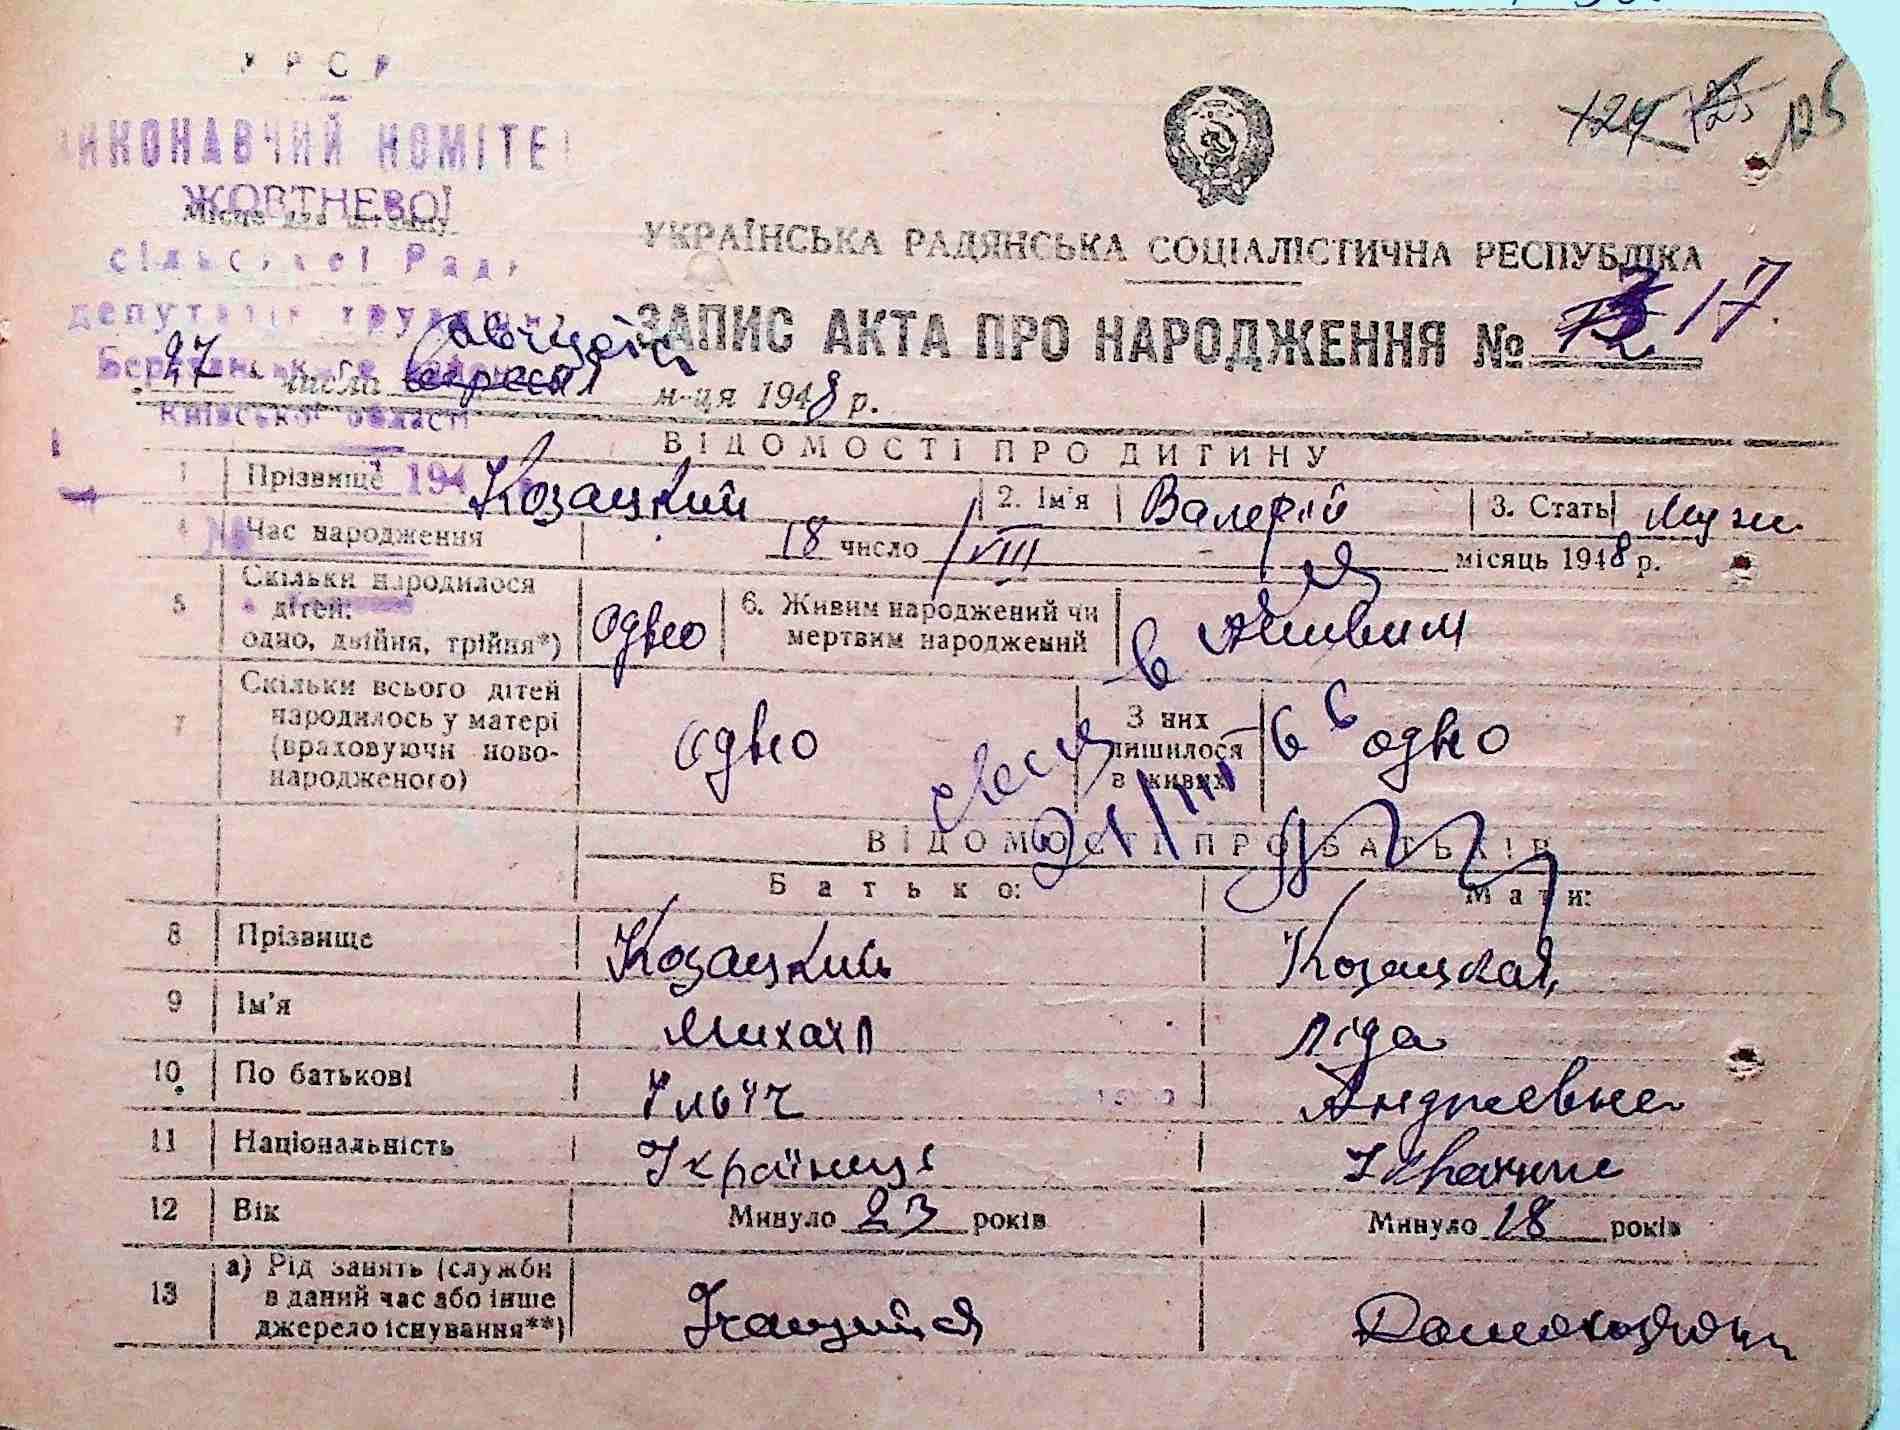 УРСР
ВИКОНАВЧИЙ КОМІТЕТ
ЖОВТНЕВОЇ
Місце для штампу
сільської Ради
депутатів трудящих
Київської області
194
124 125 125
УКРАЇНСЬКА РАДЯНСЬКА СОЦІАЛІСТИЧНА РЕСПУБЛІКА
ЗАПИС АКТА ПРО НАРОДЖЕННЯ № 17.
27 числа вересня м-ця 1948 р.
ВІДОМОСТІ ПРО ДИТИНУ
1 Прізвище Козацкий 2. Ім'я Валерій 3. Стать Муж.
4 Час народження 18 число VIII місяць 1948 р.
5 Скільки народилося дітей: одно, двійня, трійня*) одно 6. Живим народжений чи мертвим народжений Живим
7 Скільки всього дітей народилось у матері (враховуючи новонародженого) одно З них лишилося в живих одно
ВІДОМОСТІ ПРО БАТЬКІВ
Батько: Мати:
8 Прізвище Козацкий Козацкая
9 Ім'я Михаїл Ліда
10 По батькові Ільїч Андреевна
11 Національність Українець
12 Вік Минуло 23 років Минуло 18 років
13 а) Рід занять (служби в даний час або інше джерело існування**) Учащийся